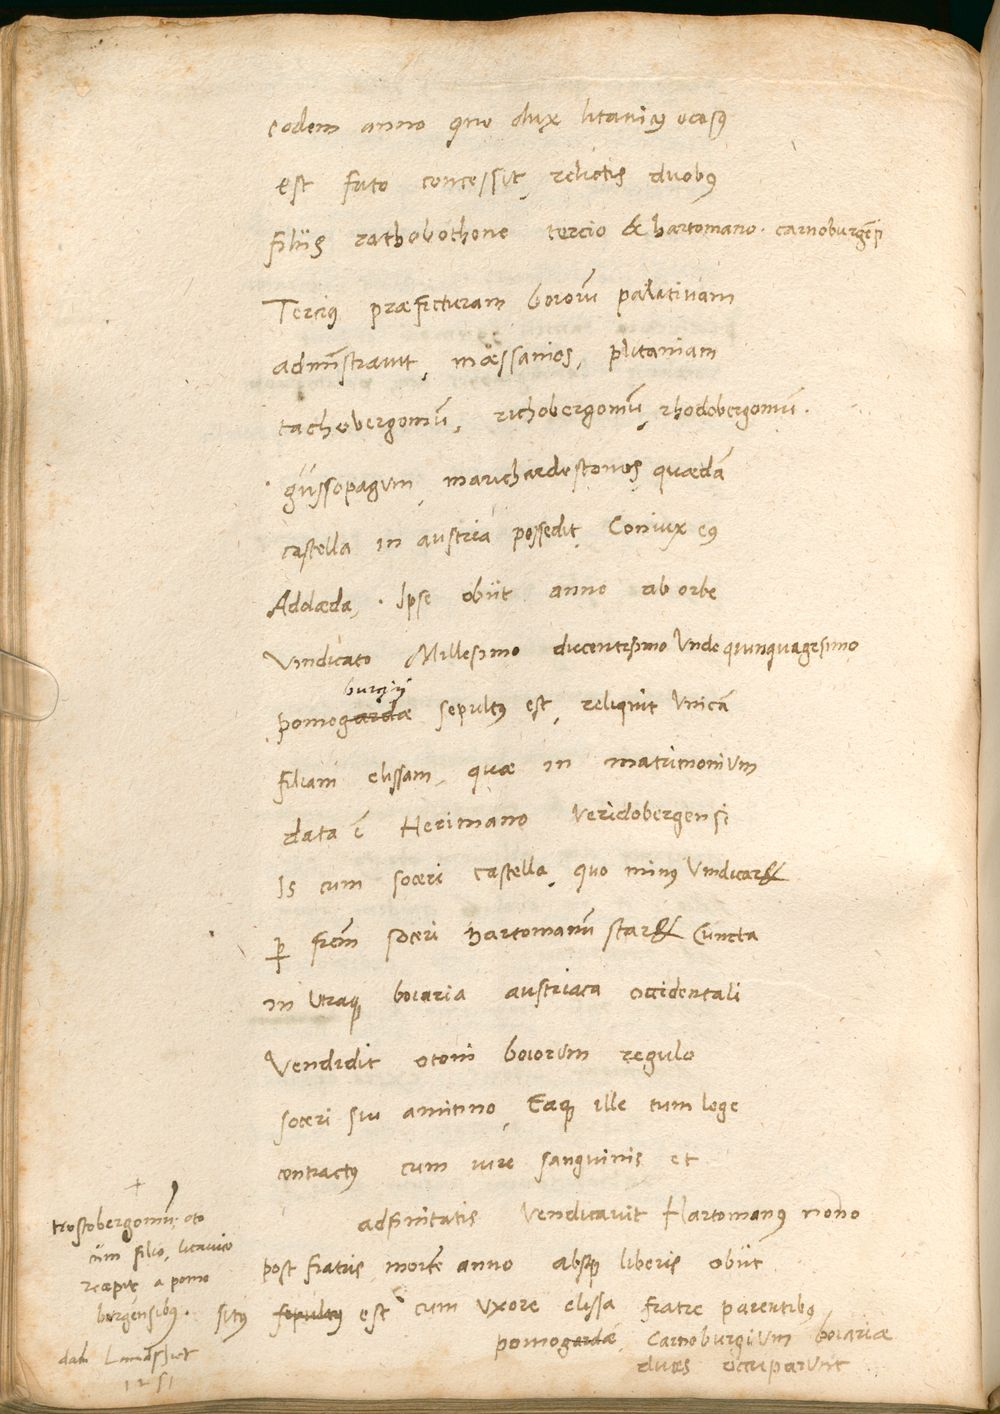 eodem anno quo dux litavicus occisus
est fato concessit, relictis duobus
filiis rathobothone tercio & hartomano. carnoburgensi
Tercius præfecturam boiorū palatinam
administravit, mæssanios, plitaniam
tachobergomū, richobergomū, rhodobergomū.
güssopagum, marichardestonos quædā
castella in austria possedit, Coniux eius
Addæda, . Ipse obiit anno ab orbe
vindicato Millesimo ducentesimo Undequinquagesimo
burgii
pomogardæ sepultus est, reliquit Unicā
filiam elissam, quæ in matrimonium
data ē Herimano Veridobergensi
Is cum soceri castella, quo minus Vindicar&
per frēm soceri hartomanū star& Cuncta
in Utraque boiaria austriaca occidentali
Vendidit otoni boiorum regulo
soceri sui amitino, Eaque ille tum lege
contractus cum iure sanguinis et
adfinitatis Vendicavit Hartomanus nono
post fratris mortē anno absque liberis obiit
situs sepultus est cum Uxore elissa fratre parentibus
pomogardæ, Carnoburgium boiariæ
duces occuparunt
+
trostobergomū: oto
cum filio, litavico
recæpit a pomo
burgensibus.
dat Landsßhuet
1251